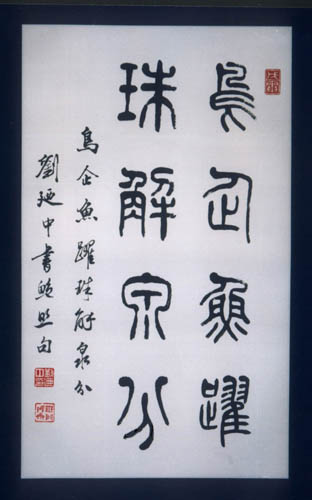 鳥企魚躍
珠解泉分
鳥企魚躍珠解泉分
劉廼中書鮑照句